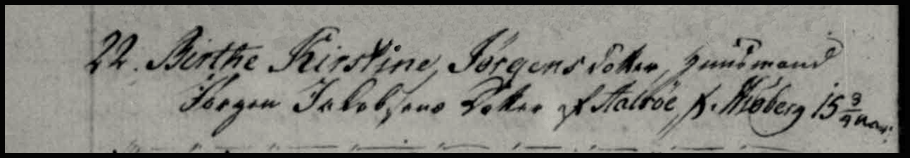 22. Birthe Kirstine, Jørgens Datter, Huusmand
Jørgen Jakobsens Datter af Aalsöe, f. Thøberg 15 3/4 Aar.